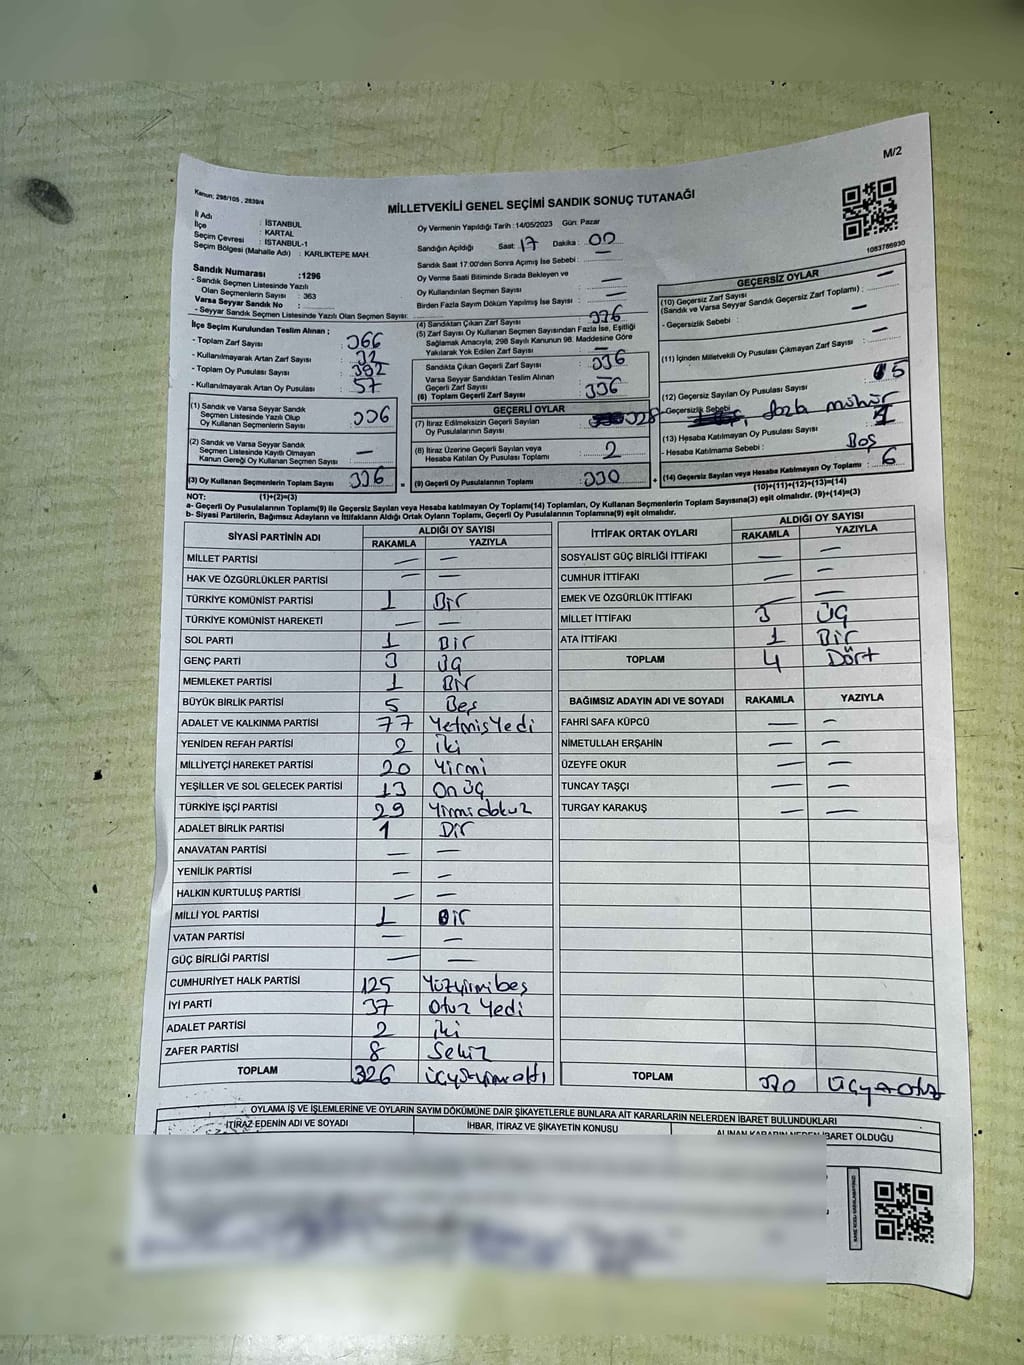 M/2
Kanun; 298/105 , 2839/4
MİLLETVEKİLİ GENEL SEÇİMİ SANDIK SONUÇ TUTANAĞI
İl Adı : İSTANBUL
İlçe : KARTAL
Seçim Çevresi : İSTANBUL-1
Seçim Bölgesi (Mahalle Adı) : KARLIKTEPE MAH.
Sandık Numarası :1296
- Sandık Seçmen Listesinde Yazılı
Olan Seçmenlerin Sayısı : 363
Varsa Seyyar Sandık No :
- Seyyar Seçmen Listesinde Yazılı Olan Seçmen Sayısı:
Oy Vermenin Yapıldığı Tarih :14/05/2023 Gün: Pazar
Sandığın Açıldığı Saat: 17 Dakika : 00
Sandık Saat 17.00'den Sonra Açılmış İse Sebebi :
Oy Verme Saati Bitiminde Sırada Bekleyen ve
Oy Kullandırılan Seçmen Sayısı : —
Birden Fazla Sayım Döküm Yapılmış İse Sayısı : —
1053766930
İlçe Seçim Kurulundan Teslim Alınan ;
- Toplam Zarf Sayısı : 366
- Kullanılmayarak Artan Zarf Sayısı :
- Toplam Oy Pusulası Sayısı :
- Kullanılmayarak Artan Oy Pusulası : 57
(1) Sandık ve Varsa Seyyar Sandık
Seçmen Listesinde Yazılı Olup
Oy Kullanan Seçmenlerin Sayısı : 336
(2) Sandık ve Varsa Seyyar Sandık
Seçmen Listesinde Kayıtlı Olmayan
Kanun Gereği Oy Kullanan Seçmen Sayısı : —
(3) Oy Kullanan Seçmenlerin Toplam Sayısı : 336
(1)+(2)=(3)
(4) Sandıktan Çıkan Zarf Sayısı : 336
(5) Zarf Sayısı Oy Kullanan Seçmen Sayısından Fazla İse, Eşitliği
Sağlamak Amacıyla, 298 Sayılı Kanunun 98. Maddesine Göre
Yakılarak Yok Edilen Zarf Sayısı : —
Sandıkta Çıkan Geçerli Zarf Sayısı : 336
Varsa Seyyar Sandıktan Teslim Alınan
Geçerli Zarf Sayısı :
(6) Toplam Geçerli Zarf Sayısı : 336
GEÇERLİ OYLAR
(7) İtiraz Edilmeksizin Geçerli Sayılan
Oy Pusulalarının Sayısı : 328
(8) İtiraz Üzerine Geçerli Sayılan veya
Hesaba Katılan Oy Pusulası Toplamı : 2
(9) Geçerli Oy Pusulalarının Toplamı : 330
GEÇERSİZ OYLAR
(10) Geçersiz Zarf Sayısı —
(Sandık ve Varsa Seyyar Sandık Geçersiz Zarf Toplamı) :
- Geçersizlik Sebebi : —
(11) İçinden Milletvekili Oy Pusulası Çıkmayan Zarf Sayısı : —
(12) Geçersiz Sayılan Oy Pusulası Sayısı : 5
- Geçersizlik Sebebi : fazla mühür
(13) Hesaba Katılmayan Oy Pusulası Sayısı : 1
- Hesaba Katılmama Sebebi : Boş
(14) Geçersiz Sayılan veya Hesaba Katılmayan Oy Toplamı : 6
(10)+(11)+(12)+(13)=(14)
NOT:
a- Geçerli Oy Pusulalarının Toplamı(9) ile Geçersiz Sayılan veya Hesaba katılmayan Oy Toplamı(14) Toplamları, Oy Kullanan Seçmenlerin Toplam Sayısına(3) eşit olmalıdır. (9)+(14)=(3)
b- Siyasi Partilerin, Bağımsız Adayların ve İttifakların Aldığı Oyların Toplamı, Geçerli Oy Pusulalarının Toplamına(9) eşit olmalıdır.
SİYASİ PARTİNİN ADI ALDIĞI OY SAYISI
RAKAMLA YAZIYLA
MİLLET PARTİSİ — —
HAK VE ÖZGÜRLÜKLER PARTİSİ — —
TÜRKİYE KOMÜNİST PARTİSİ 1 Bir
TÜRKİYE KOMÜNİST HAREKETİ — —
SOL PARTİ 1 Bir
GENÇ PARTİ 3 Üç
MEMLEKET PARTİSİ 1 Bir
BÜYÜK BİRLİK PARTİSİ 5 Beş
ADALET VE KALKINMA PARTİSİ 77 Yetmiş Yedi
YENİDEN REFAH PARTİSİ 2 İki
MİLLİYETÇİ HAREKET PARTİSİ 20 Yirmi
YEŞİLLER VE SOL GELECEK PARTİSİ 13 On Üç
TÜRKİYE İŞÇİ PARTİSİ 29 Yirmi dokuz
ADALET BİRLİK PARTİSİ 1 Bir
ANAVATAN PARTİSİ — —
YENİLİK PARTİSİ — —
HALKIN KURTULUŞ PARTİSİ — —
MİLLİ YOL PARTİSİ 1 Bir
VATAN PARTİSİ — —
GÜÇ BİRLİĞİ PARTİSİ — —
CUMHURİYET HALK PARTİSİ 125 Yüzyirmibeş
İYİ PARTİ 37 Otuz Yedi
ADALET PARTİSİ 2 İki
ZAFER PARTİSİ 8 Sekiz
TOPLAM 326 üçyüzyirmialtı
İTTİFAK ORTAK OYLARI ALDIĞI OY SAYISI
RAKAMLA YAZIYLA
SOSYALİST GÜÇ BİRLİĞİ İTTİFAKI — —
CUMHUR İTTİFAKI — —
EMEK VE ÖZGÜRLÜK İTTİFAKI — —
MİLLET İTTİFAKI 3 ÜÇ
ATA İTTİFAKI 1 Bir
TOPLAM 4 Dört
BAĞIMSIZ ADAYIN ADI VE SOYADI RAKAMLA YAZIYLA
FAHRİ SAFA KÜPCÜ — —
NİMETULLAH ERŞAHİN — —
ÜZEYFE OKUR — —
TUNCAY TAŞÇI — —
TURGAY KARAKUŞ — —
TOPLAM 330 üçyüzotuz
OYLAMA İŞ VE İŞLEMLERİNE VE OYLARIN SAYIM DÖKÜMÜNE DAİR ŞİKAYETLERLE BUNLARA AİT KARARLARIN NELERDEN İBARET BULUNDUKLARI
İTİRAZ EDENİN ADI VE SOYADI İHBAR, İTİRAZ VE ŞİKAYETİN KONUSU ALINAN KARARIN NEDEN İBARET OLDUĞU